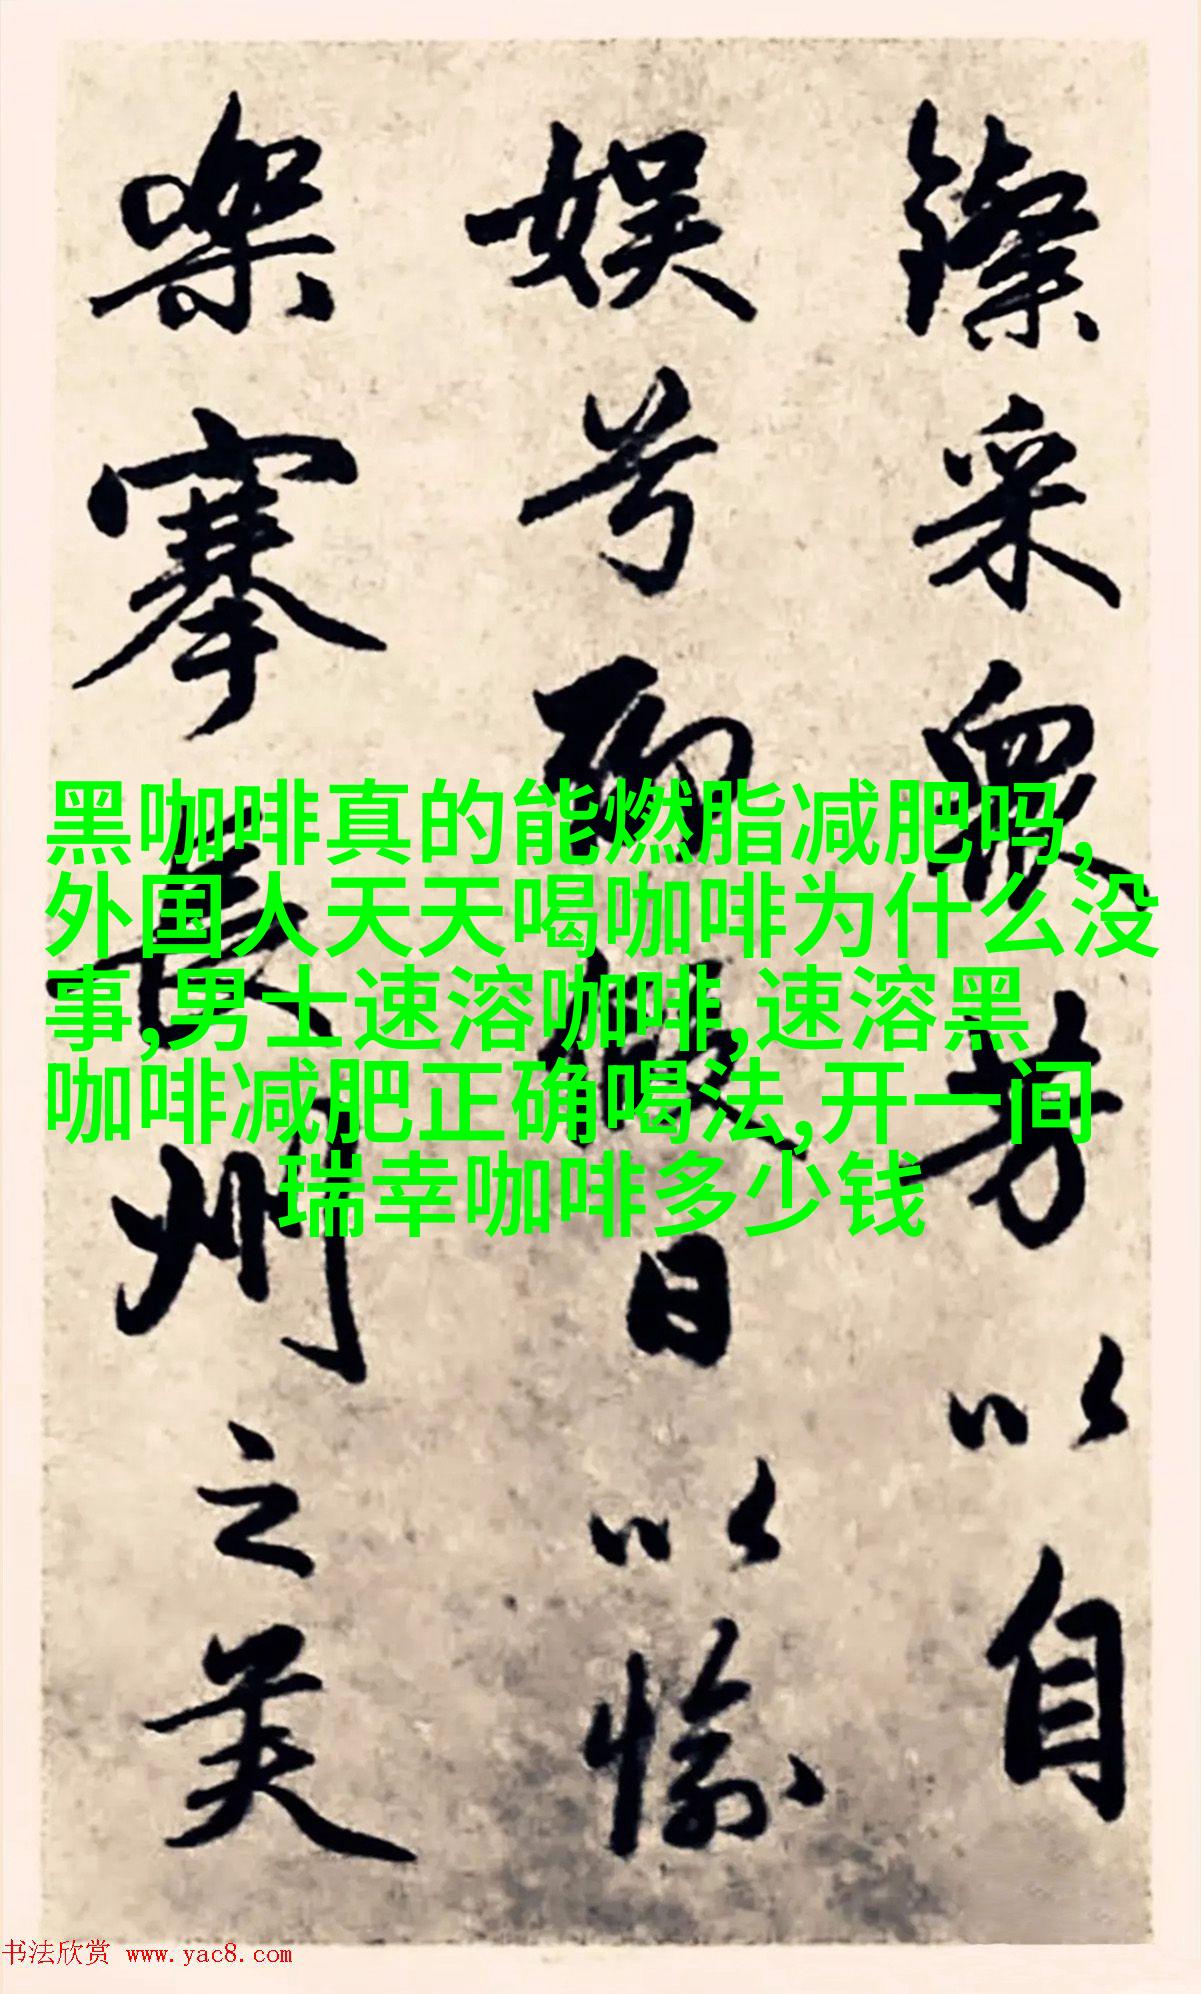 采眾芳以自
娱兮聊假日以愉
樂搴長洲之芙
黑咖啡真的能燃脂减肥吗,
外国人天天喝咖啡为什么没
事,男士速溶咖啡,速溶黑
咖啡减肥正确喝法,开一间
瑞幸咖啡多少钱
书法欣赏 www.yac8.com